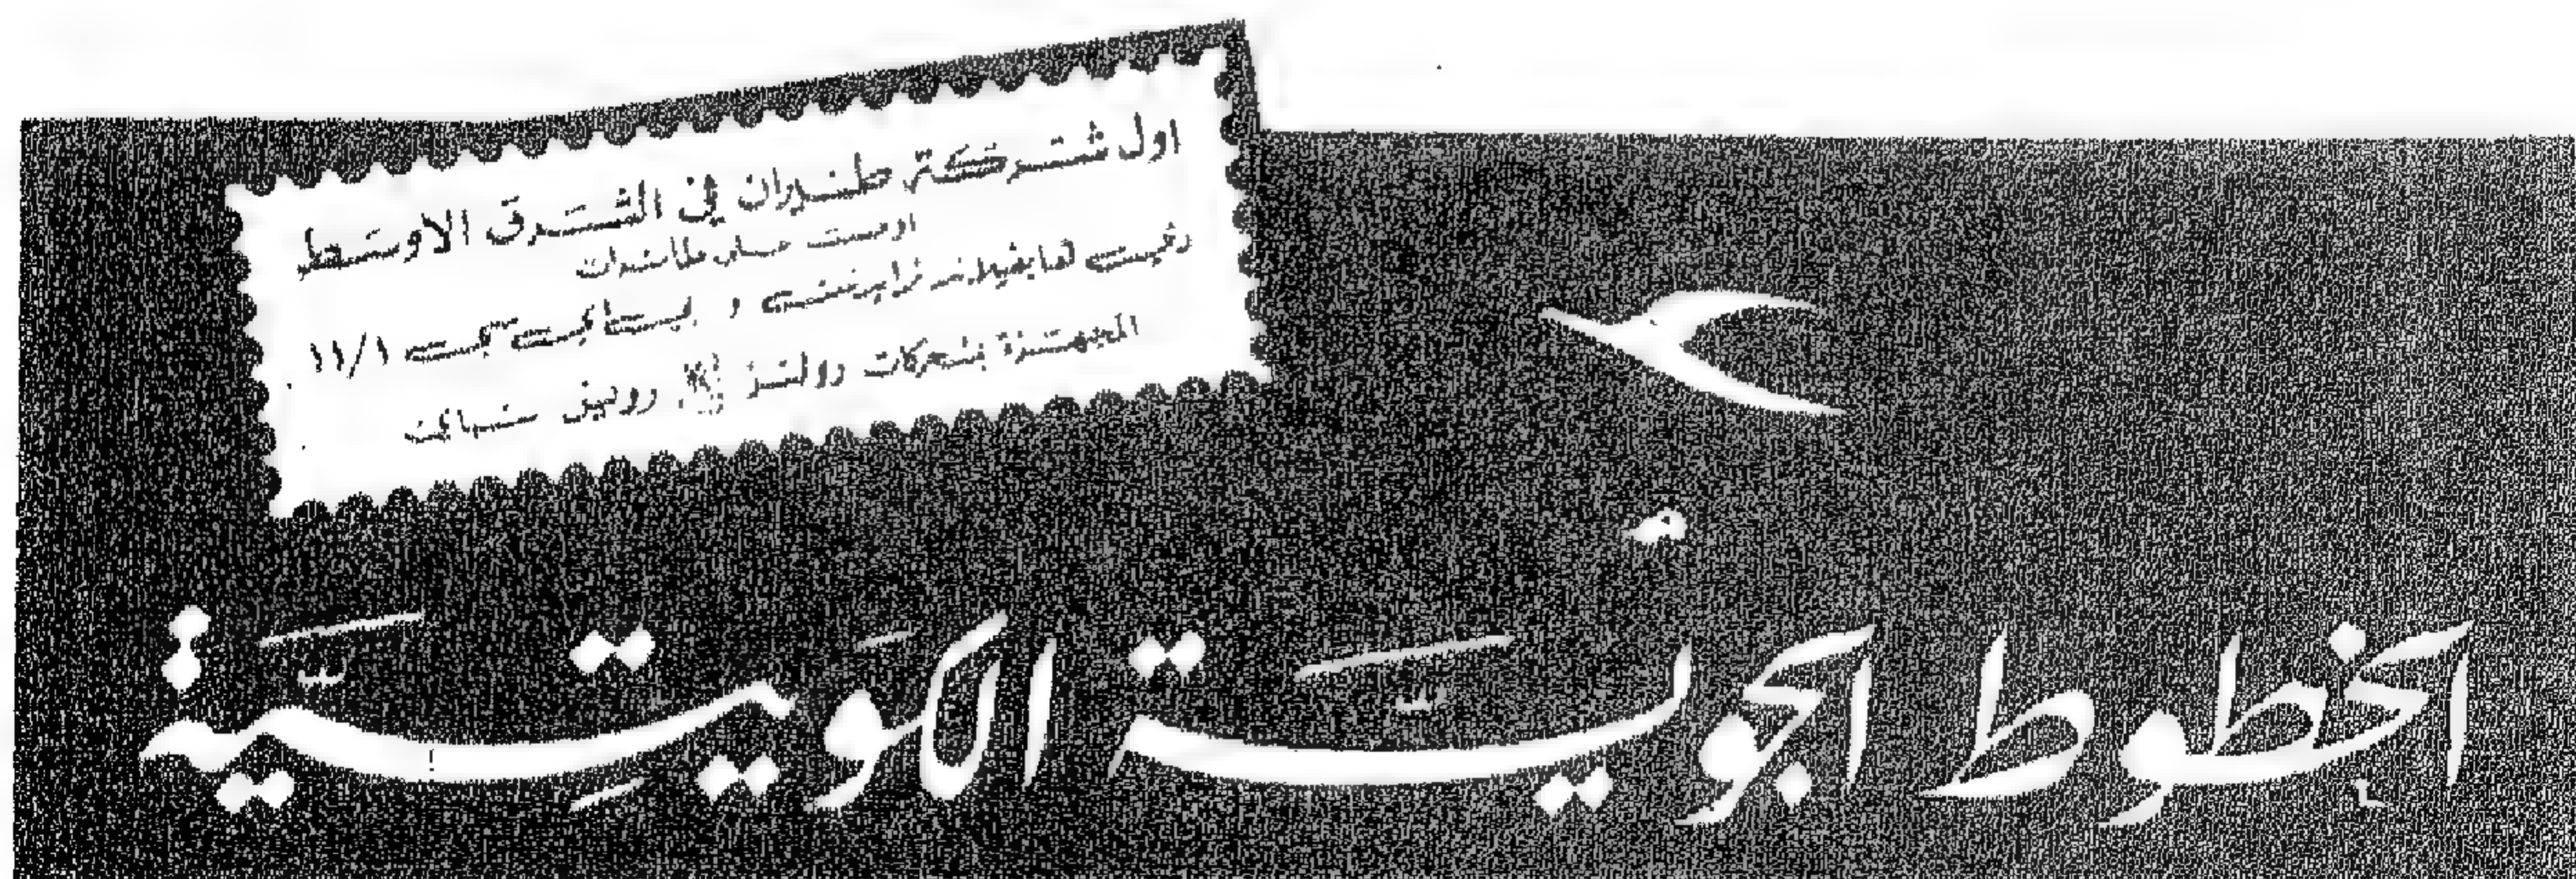 اول شركة طيران في الشرق الاوسط
اوصت على طائرات
دي هافيلاند ترايدنت و بي اي سي ١١/١
المجهزة بمحركات رولز رويس
الخطوط الجوية الكويتية